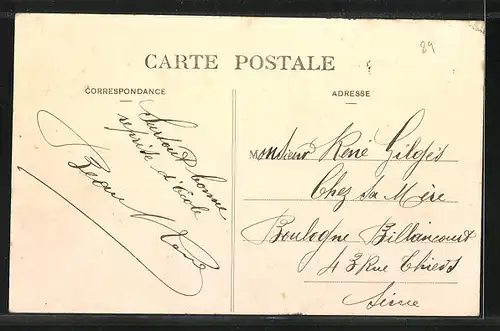 29
CARTE POSTALE
CORRESPONDANCE
ADRESSE
Surtout bonne
reprise d'école
René
Monsieur René Gilgès
Chez sa Mère
Boulogne Billancourt
43 Rue Thiers
Seine